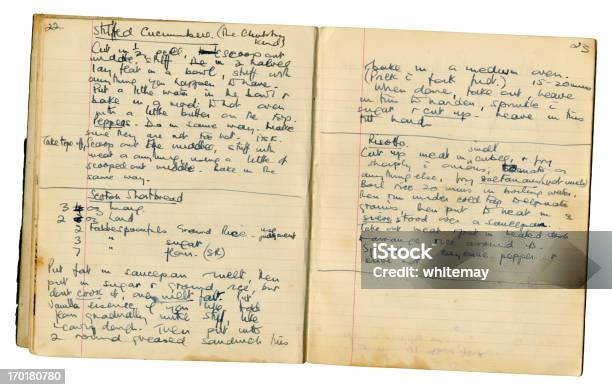 22
Stuffed Cucumbers (The Chubby kind)
Cut in ½ peel, scoop out
middle, stuff, tie in 2 halves
lay flat in a bowl, stuff with
anything you happen to have.
Put a little water in the bowl &
bake in a mod: hot oven
with a little butter on the top.
Peppers. Do in same way. Make
sure they are not too hot.
Take tops off, scoop out the middle, stuff with
meat or anything, using a little of
scooped out middle. Bake in the
same way.
Scotch Shortbread
3 oz Marg
2 oz Lard
2 Tablespoonfuls Ground Rice
3 " sugar
7 " flour (SR)
Put fat in saucepan melt then
put in sugar & ground rice, but
don't cook it, only melt fat. Put
vanilla essence if you like. Add
flour gradually, until stiff like
dough. Then put into
2 round greased sandwich tins
23
& bake in a medium oven.
(Prick with fork first.) 15-20 mins
When done, take out, leave
in tins to harden, sprinkle with
sugar & cut up. Leave in tins
till hard
Risotto.
Cut up meat in small cubes, & fry
sharply, onions, tomato or
anything else, fry
Boil rice 20 mins in boiling water,
then run under cold tap to separate
grains, then put to heat in a
sieve stood over a saucepan.
Take out meat & put in heated dish
& arrange rice around it.
cayenne pepper &
iStock
Credit: whitemay
170180780